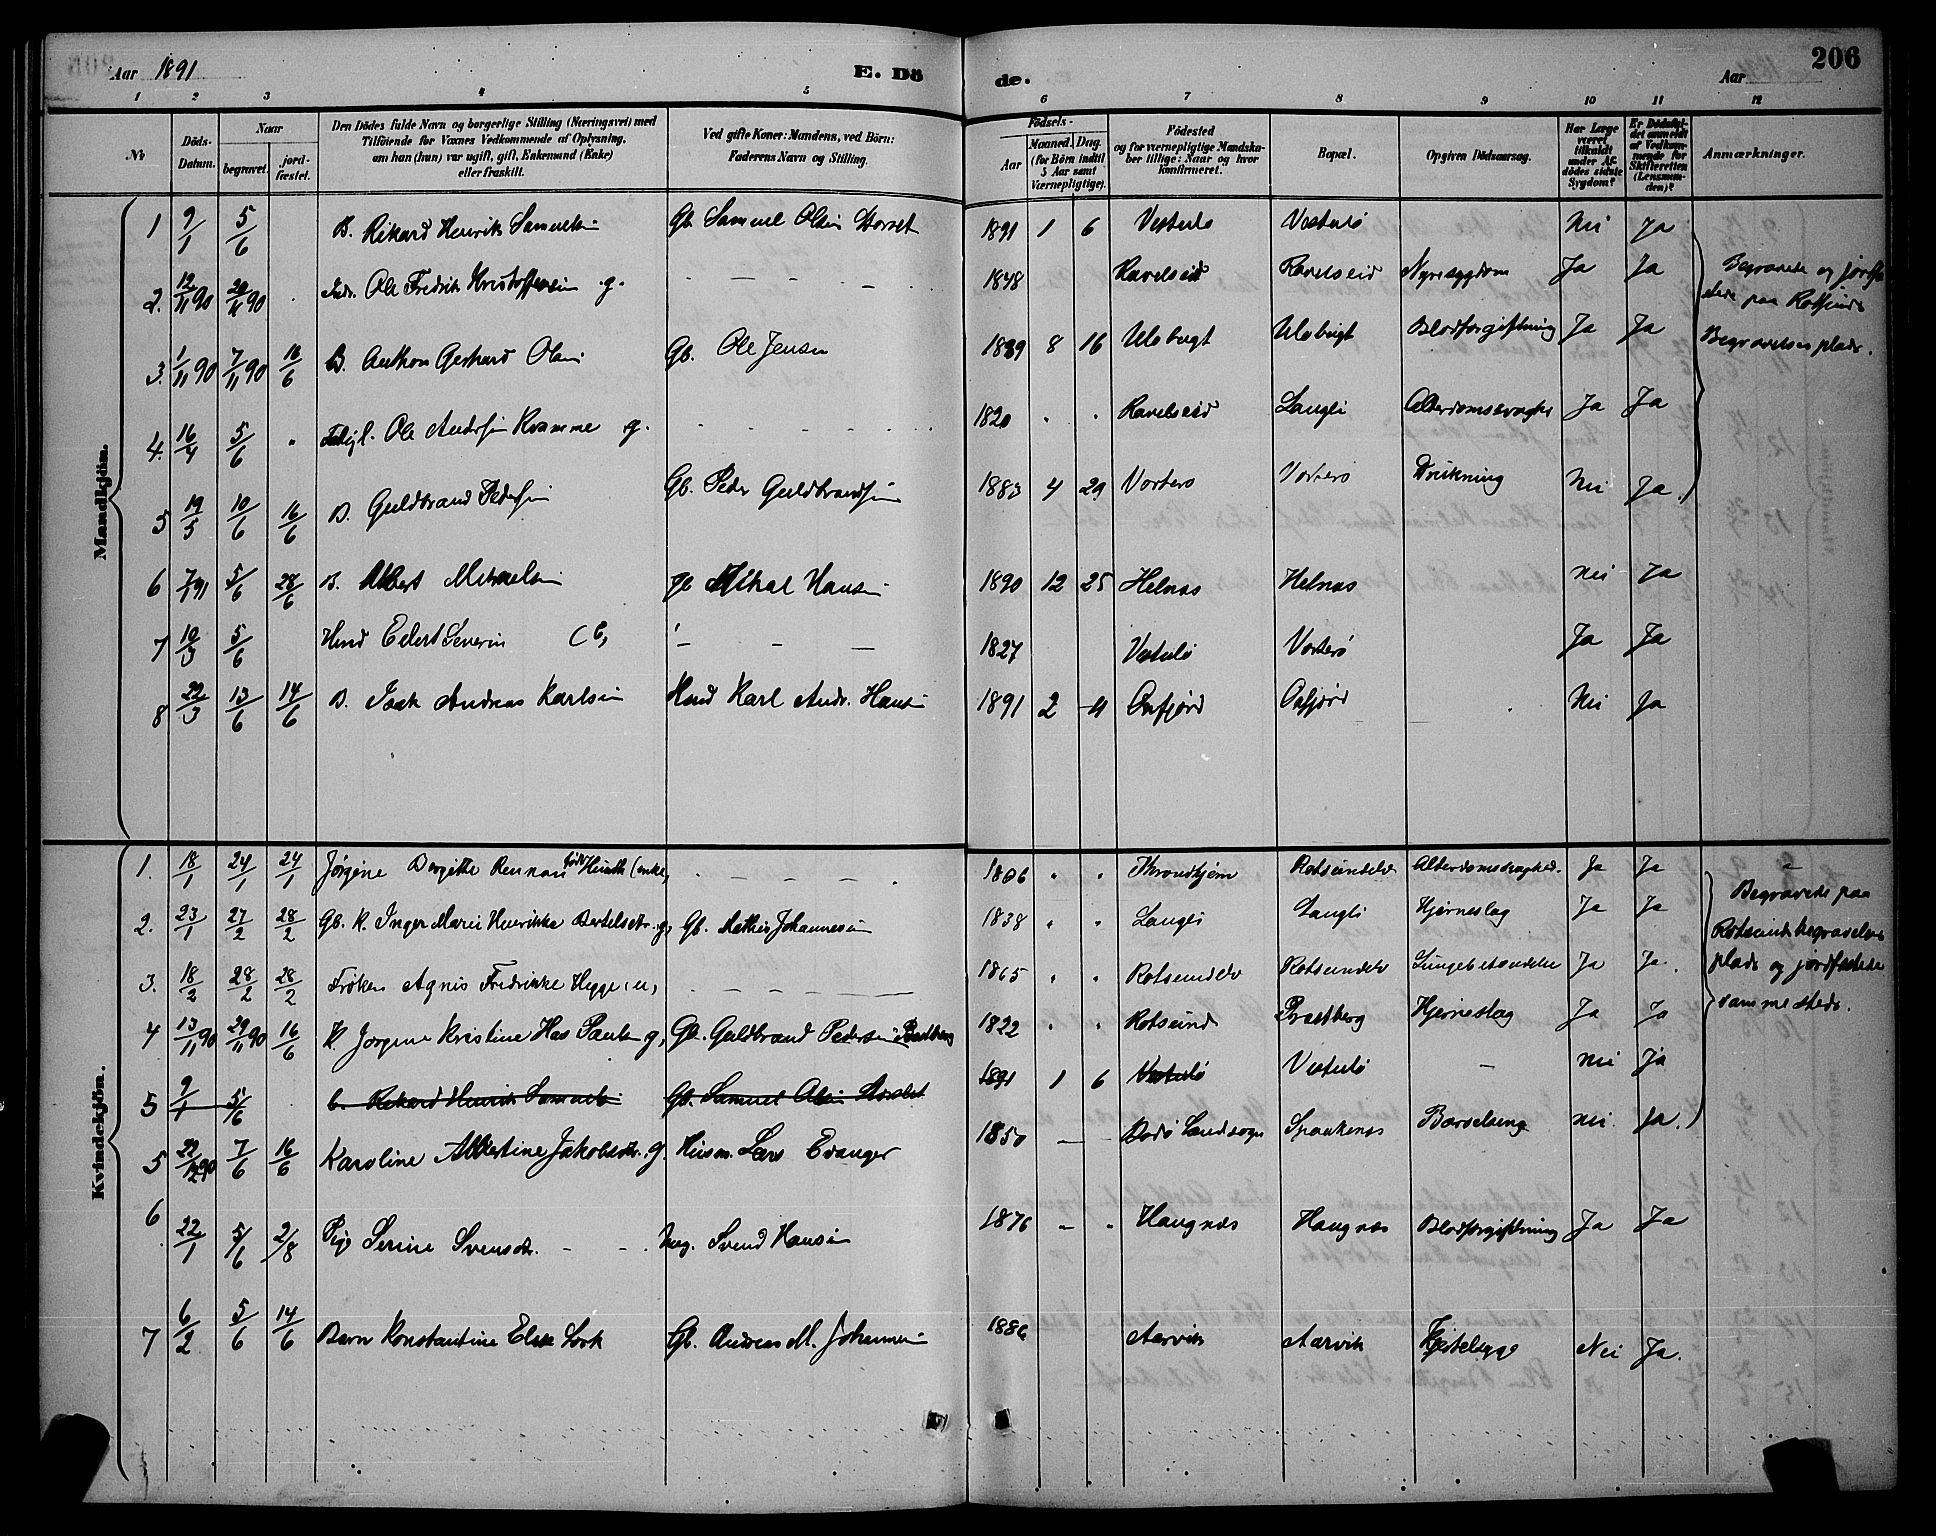 Aar 1891
E. Dö
de.
Aar
206
1 2 3 4 5 6 7 8 9 10 11 12
No
Döds-
Datum.
Naar
begravet.
jord-
fæstet.
Den Dödes fulde Navn og borgerlige Stilling (Næringsvei) med
Tilföiende for Voxnes Vedkommende af Oplysning,
om han (hun) var ugift, gift, Enkemand (Enke)
eller fraskilt.
Ved gifte Koner: Mandens, ved Börn:
Faderens Navn og Stilling.
Födsels-
Aar
Maaned.
Dag.
(for Börn indtil
5 Aar samt
Værnepligtige).
Födested
og for værnepligtige Mandska-
ber tillige: Naar og hvor
konfirmeret.
Bopæl.
Opgiven Dödsaarsag.
Har Læge
været
tilkaldt
under Af-
dödes sidste
Sygdom?
Er Dödsfal-
det anmeldt
af Vedkom-
mende for
Skifteretten
(Lensman-
den)?
Anmærkninger.
Mandkjön.
1 9/1 5/6 B. Rikard Henrik Samuelsen Gb. Samuel Olsen Storslet 1891 1 6 Vorterø Vorterø Nei Ja
2. 12/11 90 20/11 90 Ole Fredrik Kristoffersen g. 1848 Ravelseid Ravelseid Nyresygdom Ja Ja
3. 1/11 90 7/11 90 16/6 B. Anthon Gerhard Olsen Gb. Ole Jensen 1889 8 16 Ulobugt Ulobugt Blodforgiftning Ja Ja
4. 16/4 5/6 " Ole Andersen Kvamme g. 1820 " " Ravelseid Langli Alderdomssvaghed Ja Ja
5 19/5 10/6 16/6 B. Guldbrand Pedersen Gb. Peder Guldbrandsen 1883 4 29 Vorterø Vorterø Drukning Nei Ja
6 7/1 91 5/6 28/6 B. Albert Mikaelsen Gb Mikal Hansen 1890 12 25 Helnæs Helnæs Nei Ja
7 10/3 5/6 Hmd Eilert Severin 1827 Vorterø Vorterø Ja Ja
8 22/3 13/6 14/6 B. Isak Andreas Karlsen Hmd Karl Andr. Hansen 1891 2 4 Oxfjord Oxfjord Nei Ja
Begravede og jordfæ-
stede paa Rotsunds
Begravelsesplads.
Kvindekjön.
1. 18/1 24/1 24/1 Jørgine Bergitte Rennau født (enke) 1806 " " Throndhjem Rotsundelv Alderdomssvaghed. Ja Ja
2. 23/1 27/2 28/2 Gb. k. Inger Marie Henrikke Bertelsdtr. g. Gb. Mathis Johannesen 1838 " " Langli Langli Hjerneslag Ja Ja
3. 18/2 28/2 28/2 Frøken Agnes Fredrikke Hegge (u) 1865 " " Rotsundelv Rotsundelv Lungebetændelse Ja Ja.
4 13/11 90 29/11 90 16/6 K. Jørgine Kristine Has Pauls g. Gb. Guldbrand Pedersen Bratberg 1822 " " Rotsund Bratberg Hjerneslag Ja Ja
5 9/1 5/6 b. Rikard Henrik Samuelsen Gb. Samuel Olsen Storslet 1891 1 6 Vorterø Vorterø Nei Ja
5 22/12 90 7/6 16/6 Karoline Albertine Jakobsdtr. g. Husm. Lars Evanger 1850 Bodø Landsogn Spaakenæs Barselseng nei Ja.
6 22/1 5/6 2/8 Pige Serine Svensdtr. Svend Hansen 1876 Haugnæs Haugnæs Blodforgiftning Ja Ja
7 6/2 5/6 14/6 Barn Konstantine Gb. Andreas M. Johannesen 1886 Aarvik Aarvik Nei Ja.
Begravede paa
Rotsunds begravelses
plads og jordfæstede
samme steds.